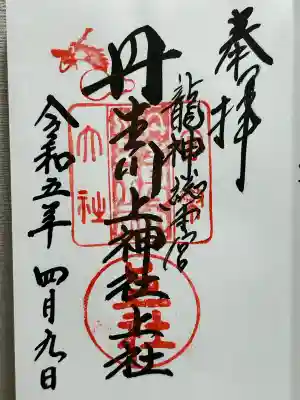 奉拝
龍神總本宮
丹生川上神社上社
大社
令和五年 四月九日